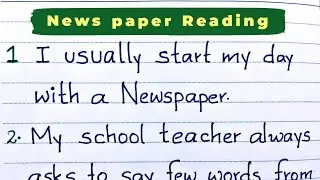 News paper Reading
1 I usually start my day
with a Newspaper.
2. My school teacher always
asks to say few words from